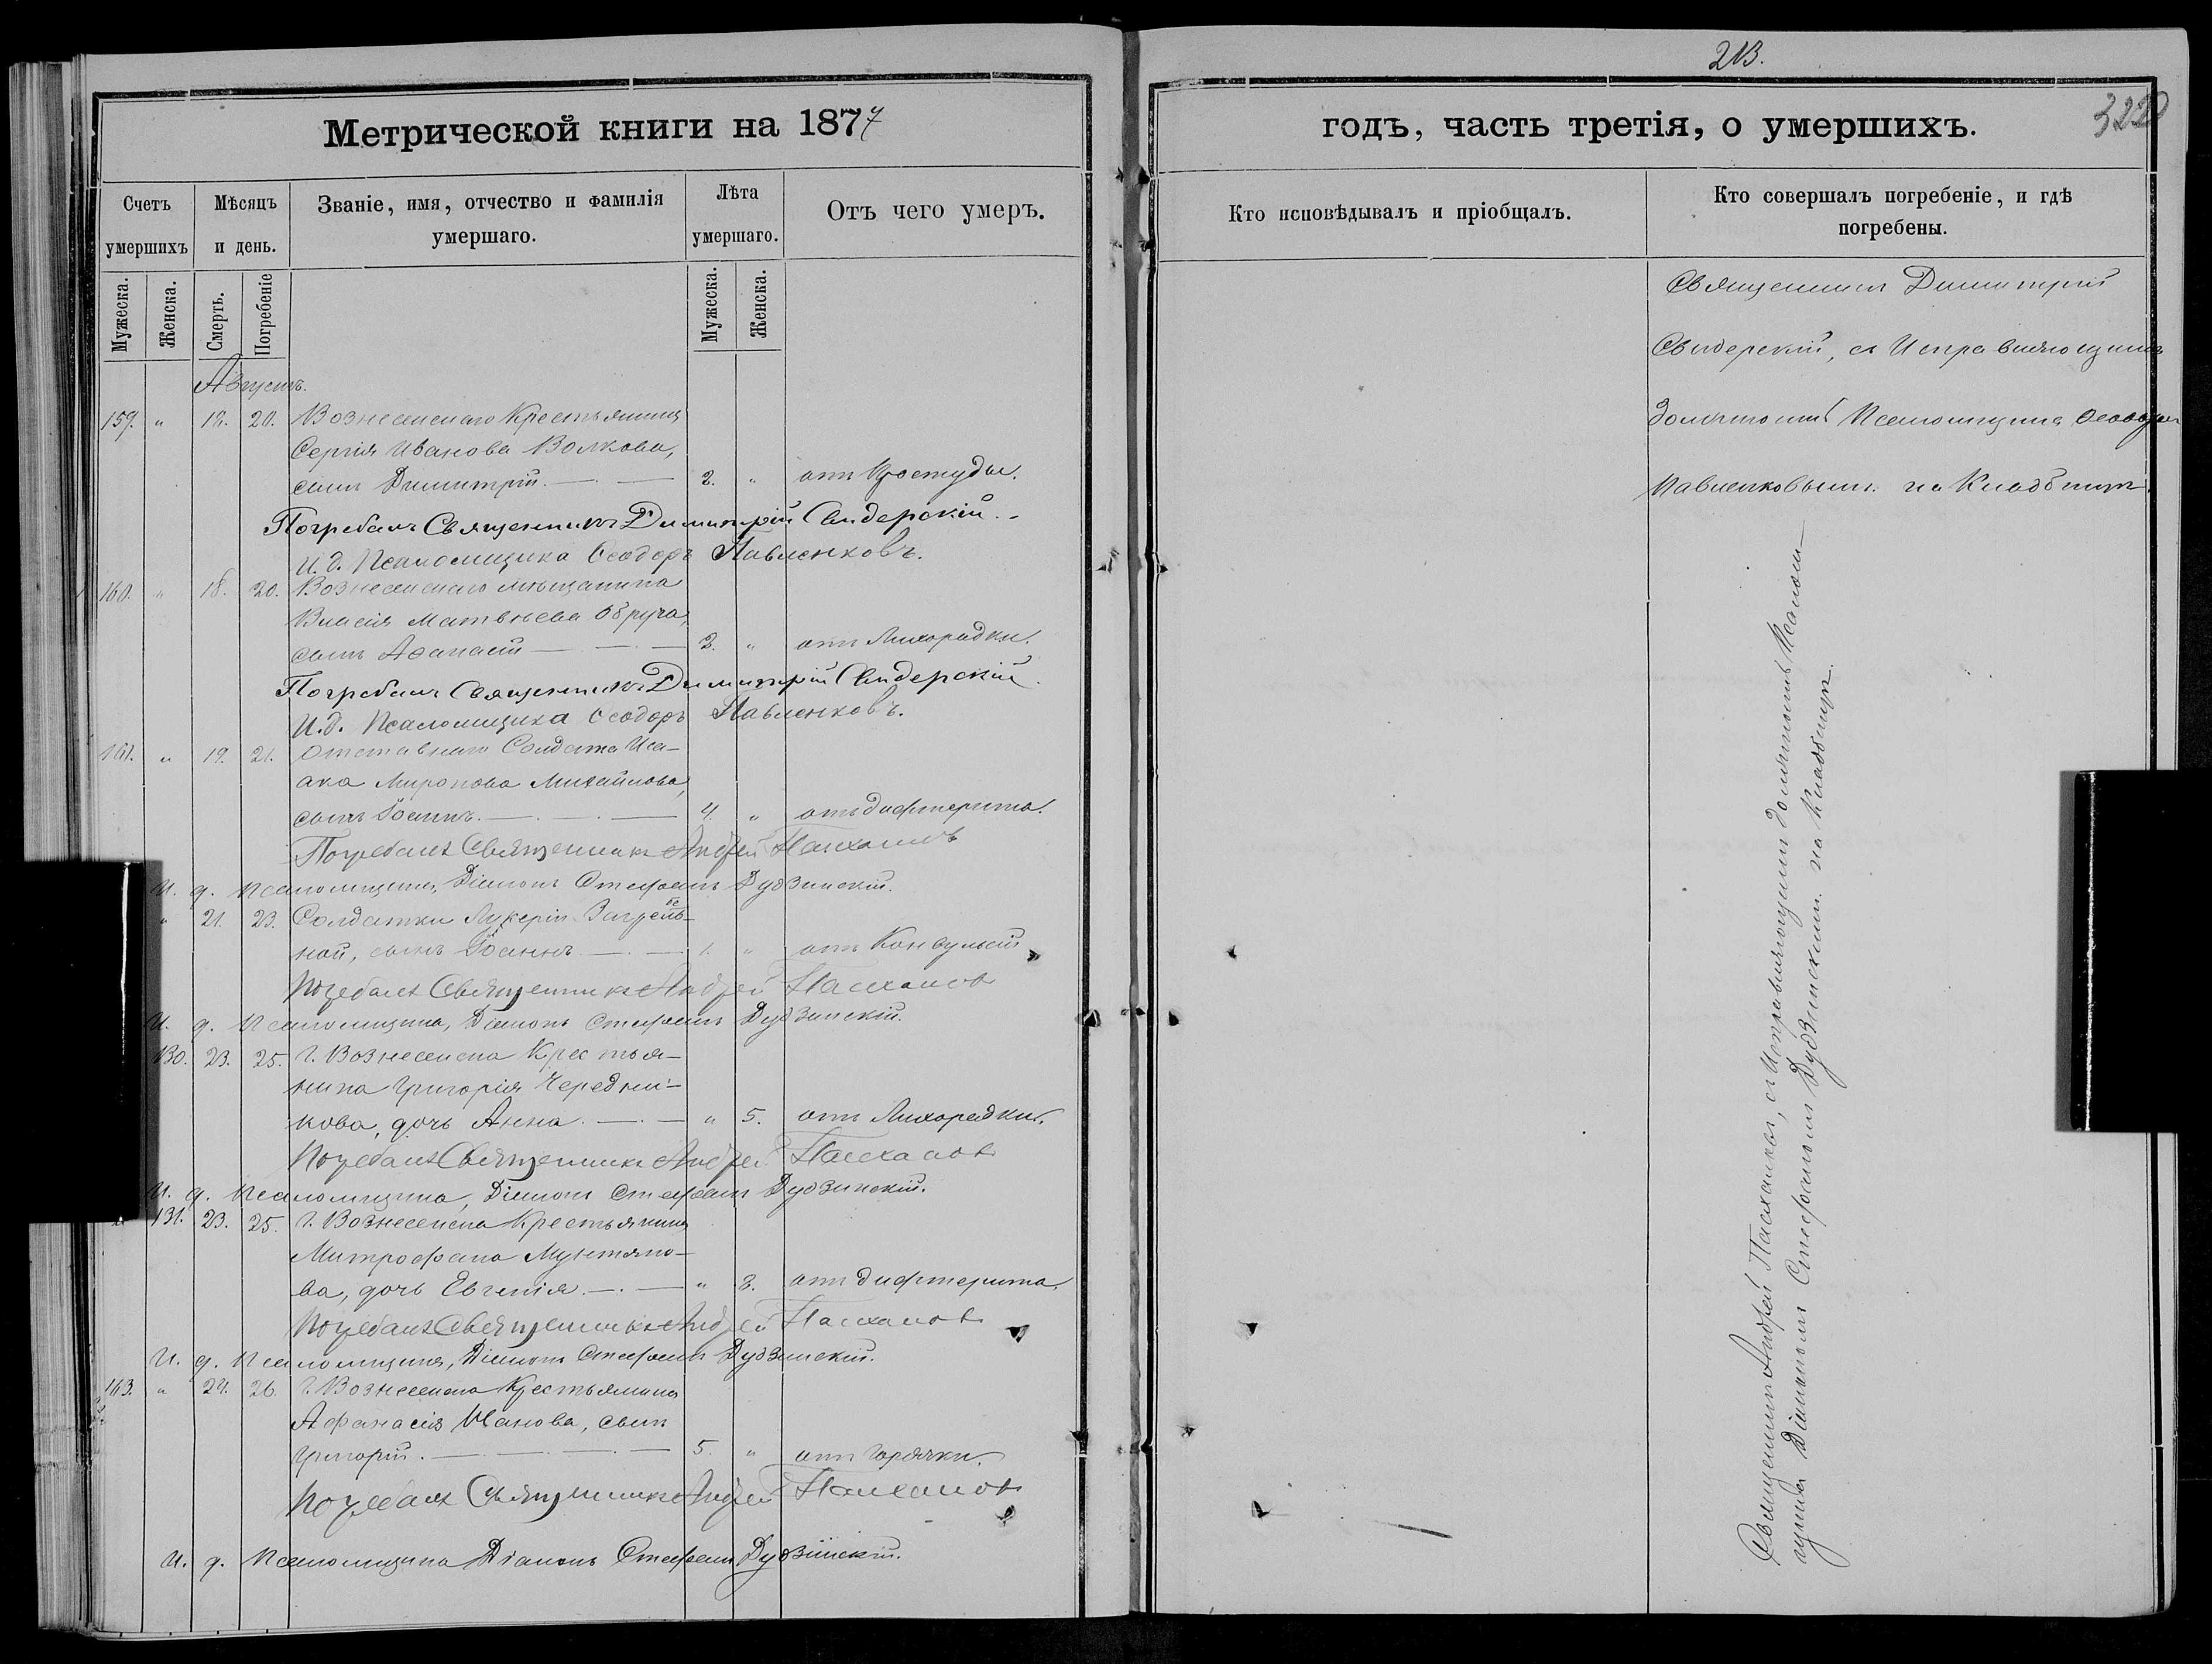 213.
322
Метрической книги на 1877
годъ, часть третія, о умершихъ.
Счетъ умершихъ
Мѣсяцъ и день.
Званіе, имя, отчество и фамилія умершаго.
Лѣта умершаго.
Отъ чего умеръ.
Кто исповѣдывалъ и пріобщалъ.
Кто совершалъ погребеніе, и гдѣ погребены.
Мужеска.
Женска.
Смерть.
Погребеніе
Мужеска.
Женска.
Августъ.
159. " 18. 20. Вознесенскаго Крестьянина
Сергія Иванова Волкова,
сынъ Димитрій. — 2. " отъ Простуды.
Погребалъ Священникъ Димитрій Свидерскій.
И. д. Псаломщика Ѳеодоръ Павленковъ.
160. " 18. 20. Вознесенскаго мѣщанина
Власія Матвѣева Обруча,
сынъ Аѳанасій — 2. " отъ Лихорадки.
Погребалъ Священникъ Димитрій Свидерскій.
И. д. Псаломщика Ѳеодоръ Павленковъ.
161. " 19. 21. Отставнаго Солдата Иса-
ака Миронова Михайлова,
сынъ Іоаннъ. — 4. " отъ дифтерита.
Погребалъ Священникъ Андрей Пасхаловъ
И. д. Псаломщика, Діаконъ Стефанъ Дудзинскій.
" 21. 23. Солдатки Лукеріи Загребель-
ной, сынъ Іоаннъ. — 1. " отъ Конвульсій
Погребалъ Священникъ Андрей Пасхаловъ
И. д. Псаломщика, Діаконъ Стефанъ Дудзинскій.
130. 23. 25. г. Вознесенска Крестья-
нина Григорія Чередни-
кова, дочь Анна. — " 5. отъ Лихорадки.
Погребалъ Священникъ Андрей Пасхаловъ
И. д. Псаломщика, Діаконъ Стефанъ Дудзинскій.
131. 23. 25. г. Вознесенска Крестьянина
Митрофана Мунтяно-
ва, дочь Евгенія. — " 8. отъ дифтерита.
Погребалъ Священникъ Андрей Пасхаловъ
И. д. Псаломщика, Діаконъ Стефанъ Дудзинскій.
163. " 24. 26. г. Вознесенска Крестьянина
Афанасія Чанова, сынъ
Григорій. — 5. " отъ Горячки.
Погребалъ Священникъ Андрей Пасхаловъ
И. д. Псаломщика Діаконъ Стефанъ Дудзинскій.
Священникъ Димитрій
Свидерскій, съ Исправляющимъ
должность Псаломщика Ѳеодоромъ
Павленковымъ. на Кладбищѣ.
Священникъ Андрей Пасхаловъ, съ Исправляющимъ должность Псалом-
щика Діакономъ Стефаномъ Дудзинскимъ. на Кладбищѣ.